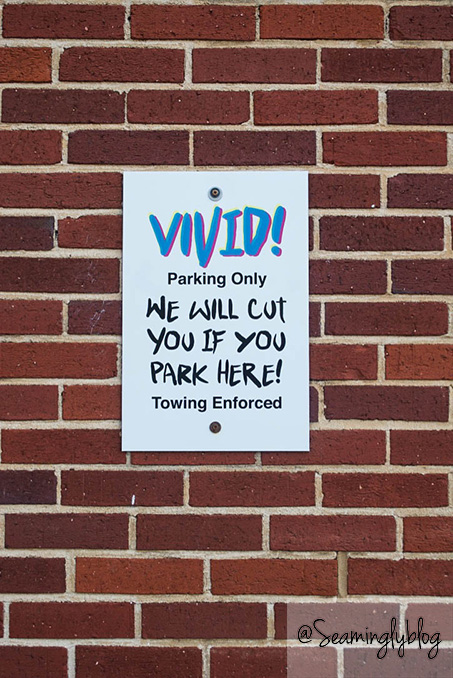 VIVID!
Parking Only
WE WILL CUT
YOU IF YOU
PARK HERE!
Towing Enforced
@Seaminglyblog